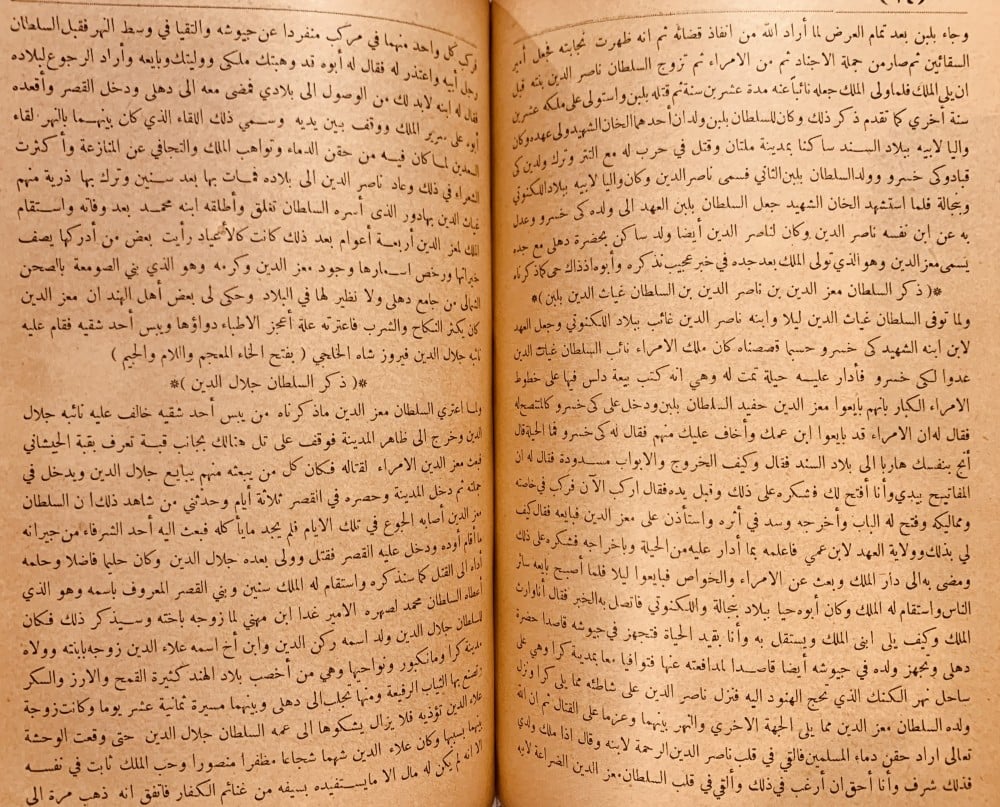 (١٤)
وجاء بلبن بعد تمام العرض لما أراد الله من انفاذ قضائه ثم انه ظهرت نجابته فجعل أمير
السقائين ثم صار من جملة الاجناد ثم من الامراء ثم تزوج السلطان ناصر الدين بنته قبل
ان يلي الملك فلما ولى الملك جعله نائبا عنه مدة عشرين سنة ثم قتله بلبن واستولى على ملكه عشرين
سنة أخري كما تقدم ذكر ذلك وكان للسلطان بلبن ولدان أحدهما الخان الشهيد ولى عهده وكان
واليا لابيه ببلاد السند ساكنا بمدينة ملتان وقتل في حرب له مع التتر وترك ولدين كى
قباد وكى خسرو وولد السلطان بلبن الثاني فسمى ناصر الدين وكان واليا لابيه ببلاد اللكنوتي
وبنجالة فلما استشهد الخان الشهيد جعل السلطان بلبن العهد الى ولده كى خسرو وعدل
به عن ابن نفسه ناصر الدين وكان لناصر الدين أيضا ولد ساكن بحضرة دهلى مع جده
يسمى معز الدين وهو الذي تولى الملك بعد جده في خبر عجيب نذكره وأبوه اذذاك حى كما ذكرناه
*( ذكر السلطان معز الدين بن ناصر الدين بن السلطان غياث الدين بلبن )*
ولما توفى السلطان غياث الدين ليلا وابنه ناصر الدين غائب ببلاد اللكنوتي وجعل العهد
لابن ابنه الشهيد كى خسرو حسبما قصصناه كان ملك الامراء نائب السلطان غياث الدين
عدوا لكى خسرو فأدار عليه حيلة تمت له وهي انه كتب بيعة دلس فيها على خطوط
الامراء الكبار بانهم بايعوا معز الدين حفيد السلطان بلبن ودخل على كى خسرو كالمتنصح له
فقال له ان الامراء قد بايعوا ابن عمك وأخاف عليك منهم فقال له كى خسرو فما الحيلة قال
أنج بنفسك هاربا الى بلاد السند فقال وكيف الخروج والابواب مسدودة فقال له ان
المفاتيح بيدي وأنا أفتح لك فشكره على ذلك وقبل يده فقال اركب الآن فركب في خاصته
ومماليكه وفتح له الباب وأخرجه وسد في أثره واستأذن على معز الدين فبايعه فقال كيف
لي بذلك وولاية العهد لابن عمي فاعلمه بما أدار عليه من الحيلة وباخراجه فشكره على ذلك
ومضى به الى دار الملك وبعث عن الامراء والخواص فبايعوا ليلا فلما أصبح بايعه سائر
الناس واستقام له الملك وكان أبوه حيا ببلاد بنجالة واللكنوتي فاتصل به الخبر فقال أنا وارث
الملك وكيف يلى ابنى الملك ويستقل به وأنا بقيد الحياة فتجهز في جيوشه قاصدا حضرة
دهلى وتجهز ولده في جيوشه أيضا قاصدا لمدافعته عنها فتوافيا معا بمدينة كرا وهي على
ساحل نهر الكنك الذي تحج الهنود اليه فنزل ناصر الدين على شاطئه مما يلى كرا ونزل
ولده السلطان معز الدين مما يلى الجهة الاخري والنهر بينهما وعزما على القتال ثم ان الله
تعالى اراد حقن دماء المسلمين فالقي في قلب ناصر الدين الرحمة لابنه وقال اذا ملك ولدي
فذلك شرف وأنا أحق ان أرغب في ذلك وألقي في قلب السلطان معز الدين الضراعة لابيه
فركب كل واحد منهما في مركب منفردا عن جيوشه والتقيا في وسط النهر فقبل السلطان
رجل أبيه واعتذر له فقال له أبوه قد وهبتك ملكى ووليتك وبايعه وأراد الرجوع لبلاده
فقال له ابنه لابد لك من الوصول الى بلادي فمضى معه الى دهلى ودخل القصر وأقعده
أبوه على سرير الملك ووقف بين يديه وسمي ذلك اللقاء الذي كان بينهما بالنهر لقاء
السعدين لما كان فيه من حقن الدماء وتواهب الملك والتجافي عن المنازعة وأكثرت
الشعراء في ذلك وعاد ناصر الدين الى بلاده فمات بها بعد سنين وترك بها ذرية منهم
غياث الدين بهادور الذى أسره السلطان تغلق وأطلقه ابنه محمد بعد وفاته واستقام
الملك لمعز الدين أربعة أعوام بعد ذلك كانت كالأعياد رأيت بعض من أدركها يصف
خيراتها ورخص اسعارها وجود معز الدين وكرمه وهو الذي بني الصومعة بالصحن
الشمالى من جامع دهلى ولا نظير لها في البلاد وحكى لى بعض أهل الهند ان معز الدين
كان يكثر النكاح والشرب فاعترته علة أعجز الاطباء دواؤها ويبس أحد شقيه فقام عليه
نائبه جلال الدين فيروز شاه الخلجي ( بفتح الخاء المعجم واللام والجيم )
*( ذكر السلطان جلال الدين )*
ولما اعتري السلطان معز الدين ماذكرناه من يبس أحد شقيه خالف عليه نائبه جلال
الدين وخرج الى ظاهر المدينة فوقف على تل هنالك بجانب قبة تعرف بقبة الجيشاني
فبعث معز الدين الامراء لقتاله فكان كل من يبعثه منهم يبايع جلال الدين ويدخل في
جملته ثم دخل المدينة وحصره في القصر ثلاثة أيام وحدثني من شاهد ذلك ان السلطان
معز الدين أصابه الجوع في تلك الايام فلم يجد ما يأكله فبعث اليه أحد الشرفاء من جيرانه
ما أقام أوده ودخل عليه القصر فقتل وولى بعده جلال الدين وكان حليما فاضلا وحلمه
أداه الى القتل كما سنذكره واستقام له الملك سنين وبني القصر المعروف باسمه وهو الذي
أعطاه السلطان محمد لصهره الامير غدا ابن مهني لما زوجه باخته وسيذكر ذلك فكان
للسلطان جلال الدين ولد اسمه ركن الدين وابن أخ اسمه علاء الدين زوجه بابنته وولاه
مدينة كرا ومانكبور ونواحيها وهي من أخصب بلاد الهند كثيرة القمح والارز والسكر
وتصنع بها الثياب الرفيعة ومنها تجلب الى دهلى وبينهما مسيرة ثمانية عشر يوما وكانت زوجة
علاء الدين تؤذيه فلا يزال يشكوها الى عمه السلطان جلال الدين حتى وقعت الوحشة
بينهما بسببها وكان علاء الدين شهما شجاعا مظفرا منصورا وحب الملك ثابت في نفسه
الا انه لم يكن له مال الا ما يستفيده بسيفه من غنائم الكفار فاتفق انه ذهب مرة الى